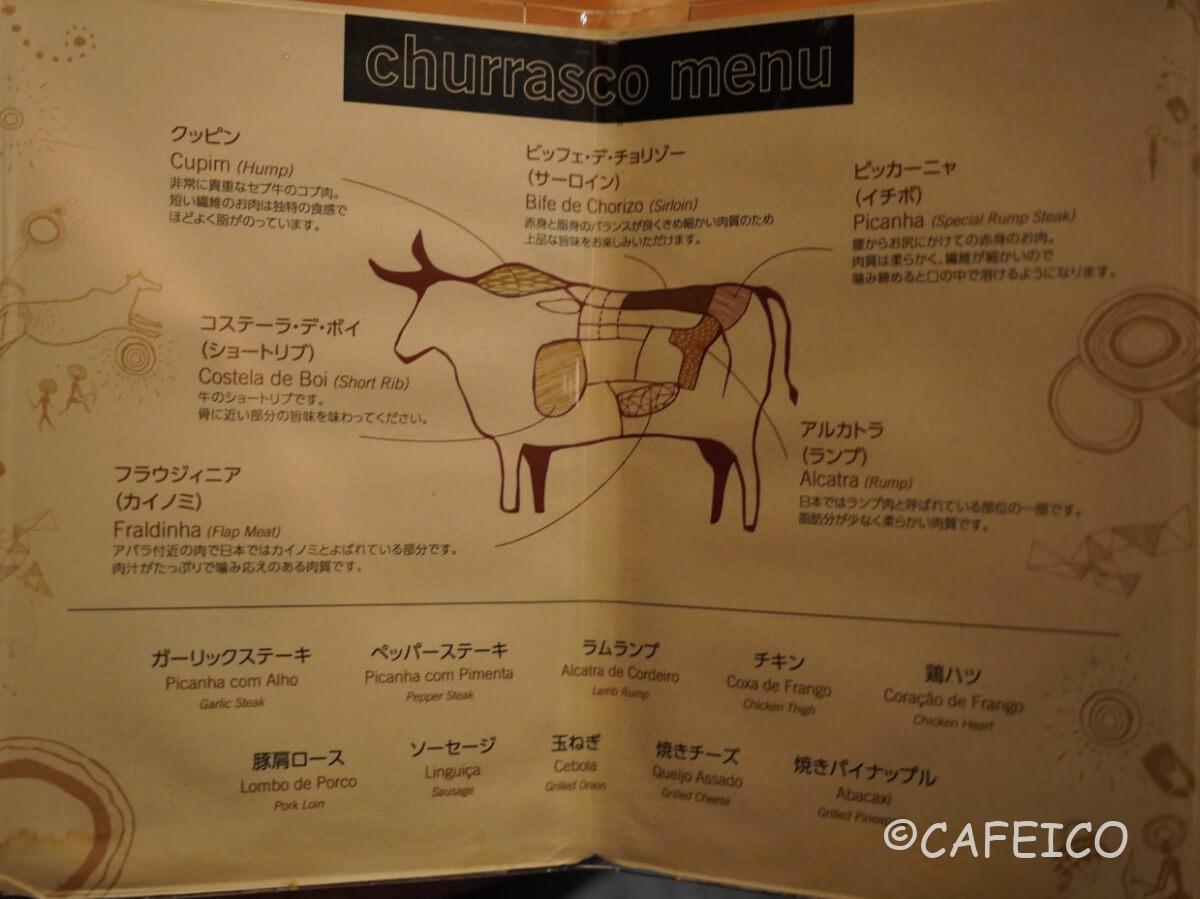 churrasco menu
クッピン
Cupim (Hump)
非常に貴重なセブ牛のコブ肉。
短い繊維のお肉は独特の食感で
ほどよく脂がのっています。
ビッフェ・デ・チョリゾー
(サーロイン)
Bife de Chorizo (Sirloin)
赤身と脂身のバランスが良くきめ細かい肉質のため
上品な旨味をお楽しみいただけます。
ピッカーニャ
(イチボ)
Picanha (Special Rump Steak)
腰からお尻にかけての赤身のお肉。
肉質は柔らかく、繊維が細かいので
噛み締めると口の中で溶けるようになります。
コステーラ・デ・ボイ
(ショートリブ)
Costela de Boi (Short Rib)
牛のショートリブです。
骨に近い部分の旨味を味わってください。
アルカトラ
(ランプ)
Alcatra (Rump)
日本ではランプ肉と呼ばれている部位の一部です。
脂肪分が少なく柔らかい肉質です。
フラウジィニア
(カイノミ)
Fraldinha (Flap Meat)
アバラ付近の肉で日本ではカイノミとよばれている部分です。
肉汁がたっぷりで噛み応えのある肉質です。
ガーリックステーキ
Picanha com Alho
Garlic Steak
ペッパーステーキ
Picanha com Pimenta
Pepper Steak
ラムランプ
Alcatra de Cordeiro
Lamb Rump
チキン
Coxa de Frango
Chicken Thigh
鶏ハツ
Coração de Frango
Chicken Heart
豚肩ロース
Lombo de Porco
Pork Loin
ソーセージ
Linguiça
Sausage
玉ねぎ
Cebola
Grilled Onion
焼きチーズ
Queijo Assado
Grilled Cheese
焼きパイナップル
Abacaxi
Grilled
©CAFEICO